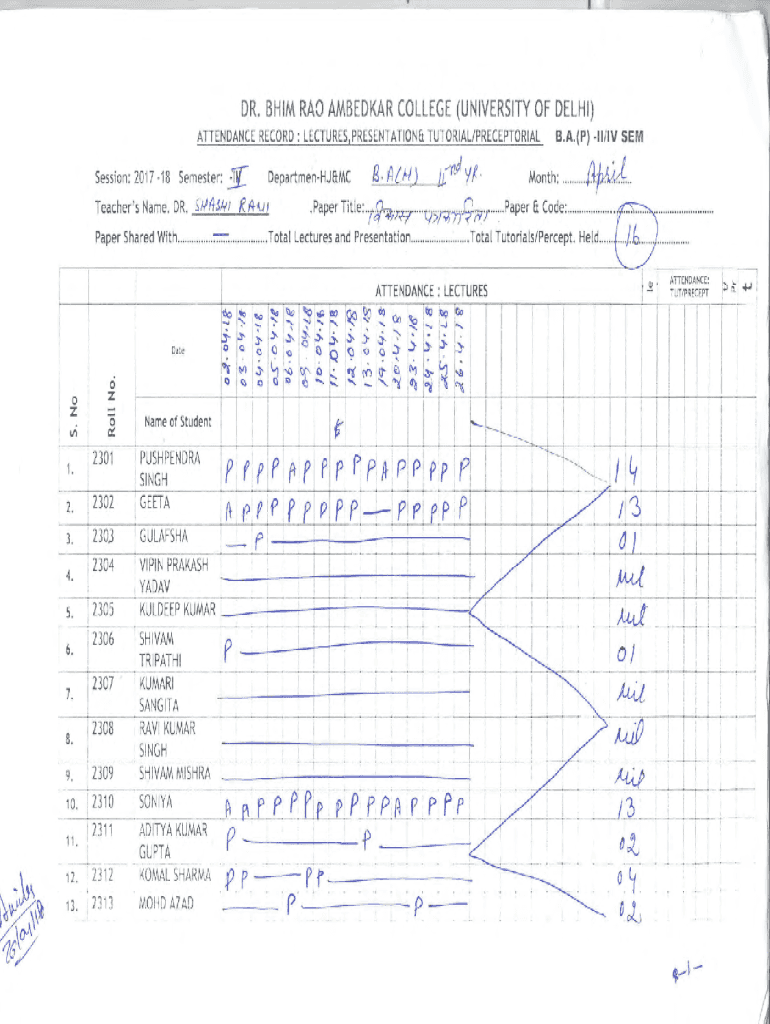 DR. BHIM RAO AMBEDKAR COLLEGE (UNIVERSITY OF DELHI)
ATTENDANCE RECORD : LECTURES,PRESENTATION& TUTORIAL/PRECEPTORIAL B.A.(P) -II/IV SEM
Session: 2017 -18 Semester: -IV Departmen-HJ&MC B.A(H) IInd YR. Month: April
Teacher's Name. DR. SHASHI RANI .Paper Title: विकास पत्रकारिता Paper & Code:
Paper Shared With — Total Lectures and Presentation Total Tutorials/Percept. Held 16
ATTENDANCE : LECTURES ATTENDANCE: TUT/PRECEPT
S. No Roll No. Date 02.04.18 03.04.18 04.04.18 05.04.18 06.04.18 09.04.18 10.04.18 11.04.18 12.04.18 13.04.18 19.04.18 20.4.18 23.4.18 24.4.18 25.4.18 26.4.18
Name of Student
1. 2301 PUSHPENDRA SINGH P P P P A P P P P P A P P P P P 14
2. 2302 GEETA A P P P P P P P P — P P P P P 13
3. 2303 GULAFSHA — P — 01
4. 2304 VIPIN PRAKASH YADAV — Nil
5. 2305 KULDEEP KUMAR — Nil
6. 2306 SHIVAM TRIPATHI P — 01
7. 2307 KUMARI SANGITA — Nil
8. 2308 RAVI KUMAR SINGH — Nil
9. 2309 SHIVAM MISHRA — Nil
10. 2310 SONIYA A A P P P P P P P P P A P P P P 13
11. 2311 ADITYA KUMAR GUPTA P — P — 02
12. 2312 KOMAL SHARMA P P — P P — 04
13. 2313 MOHD AZAD — P — P — 02
26/04/18
-1-